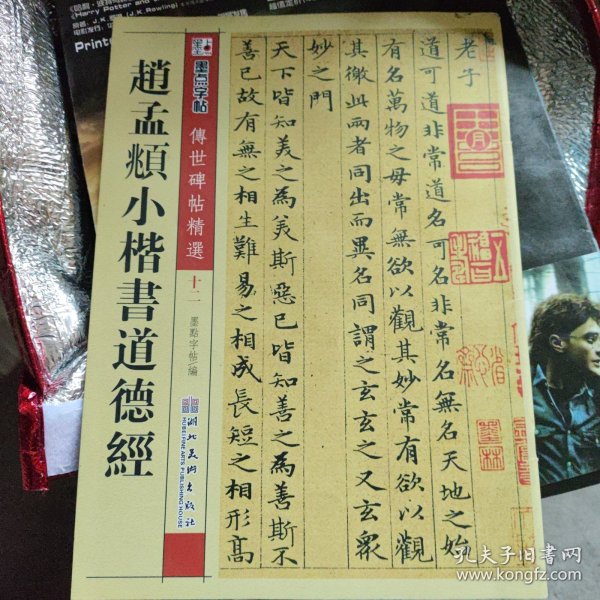 《Harry Potter and
原著：J.K.罗琳(J.K.Rowling)
Printe
墨点字帖
傳世碑帖精選
十二
墨點字帖 編
趙孟頫小楷書道德經
湖北美術出版社
HUBEI FINE ARTS PUBLISHING HOUSE
老子
道可道非常道名可名非常名無名天地之始
有名萬物之母常無欲以觀其妙常有欲以觀
其徼此兩者同出而異名同謂之玄玄之又玄衆
妙之門
天下皆知美之為美斯惡已皆知善之為善斯不
善已故有無之相生難易之相成長短之相形高
孔夫子旧书网
www.kongfz.com